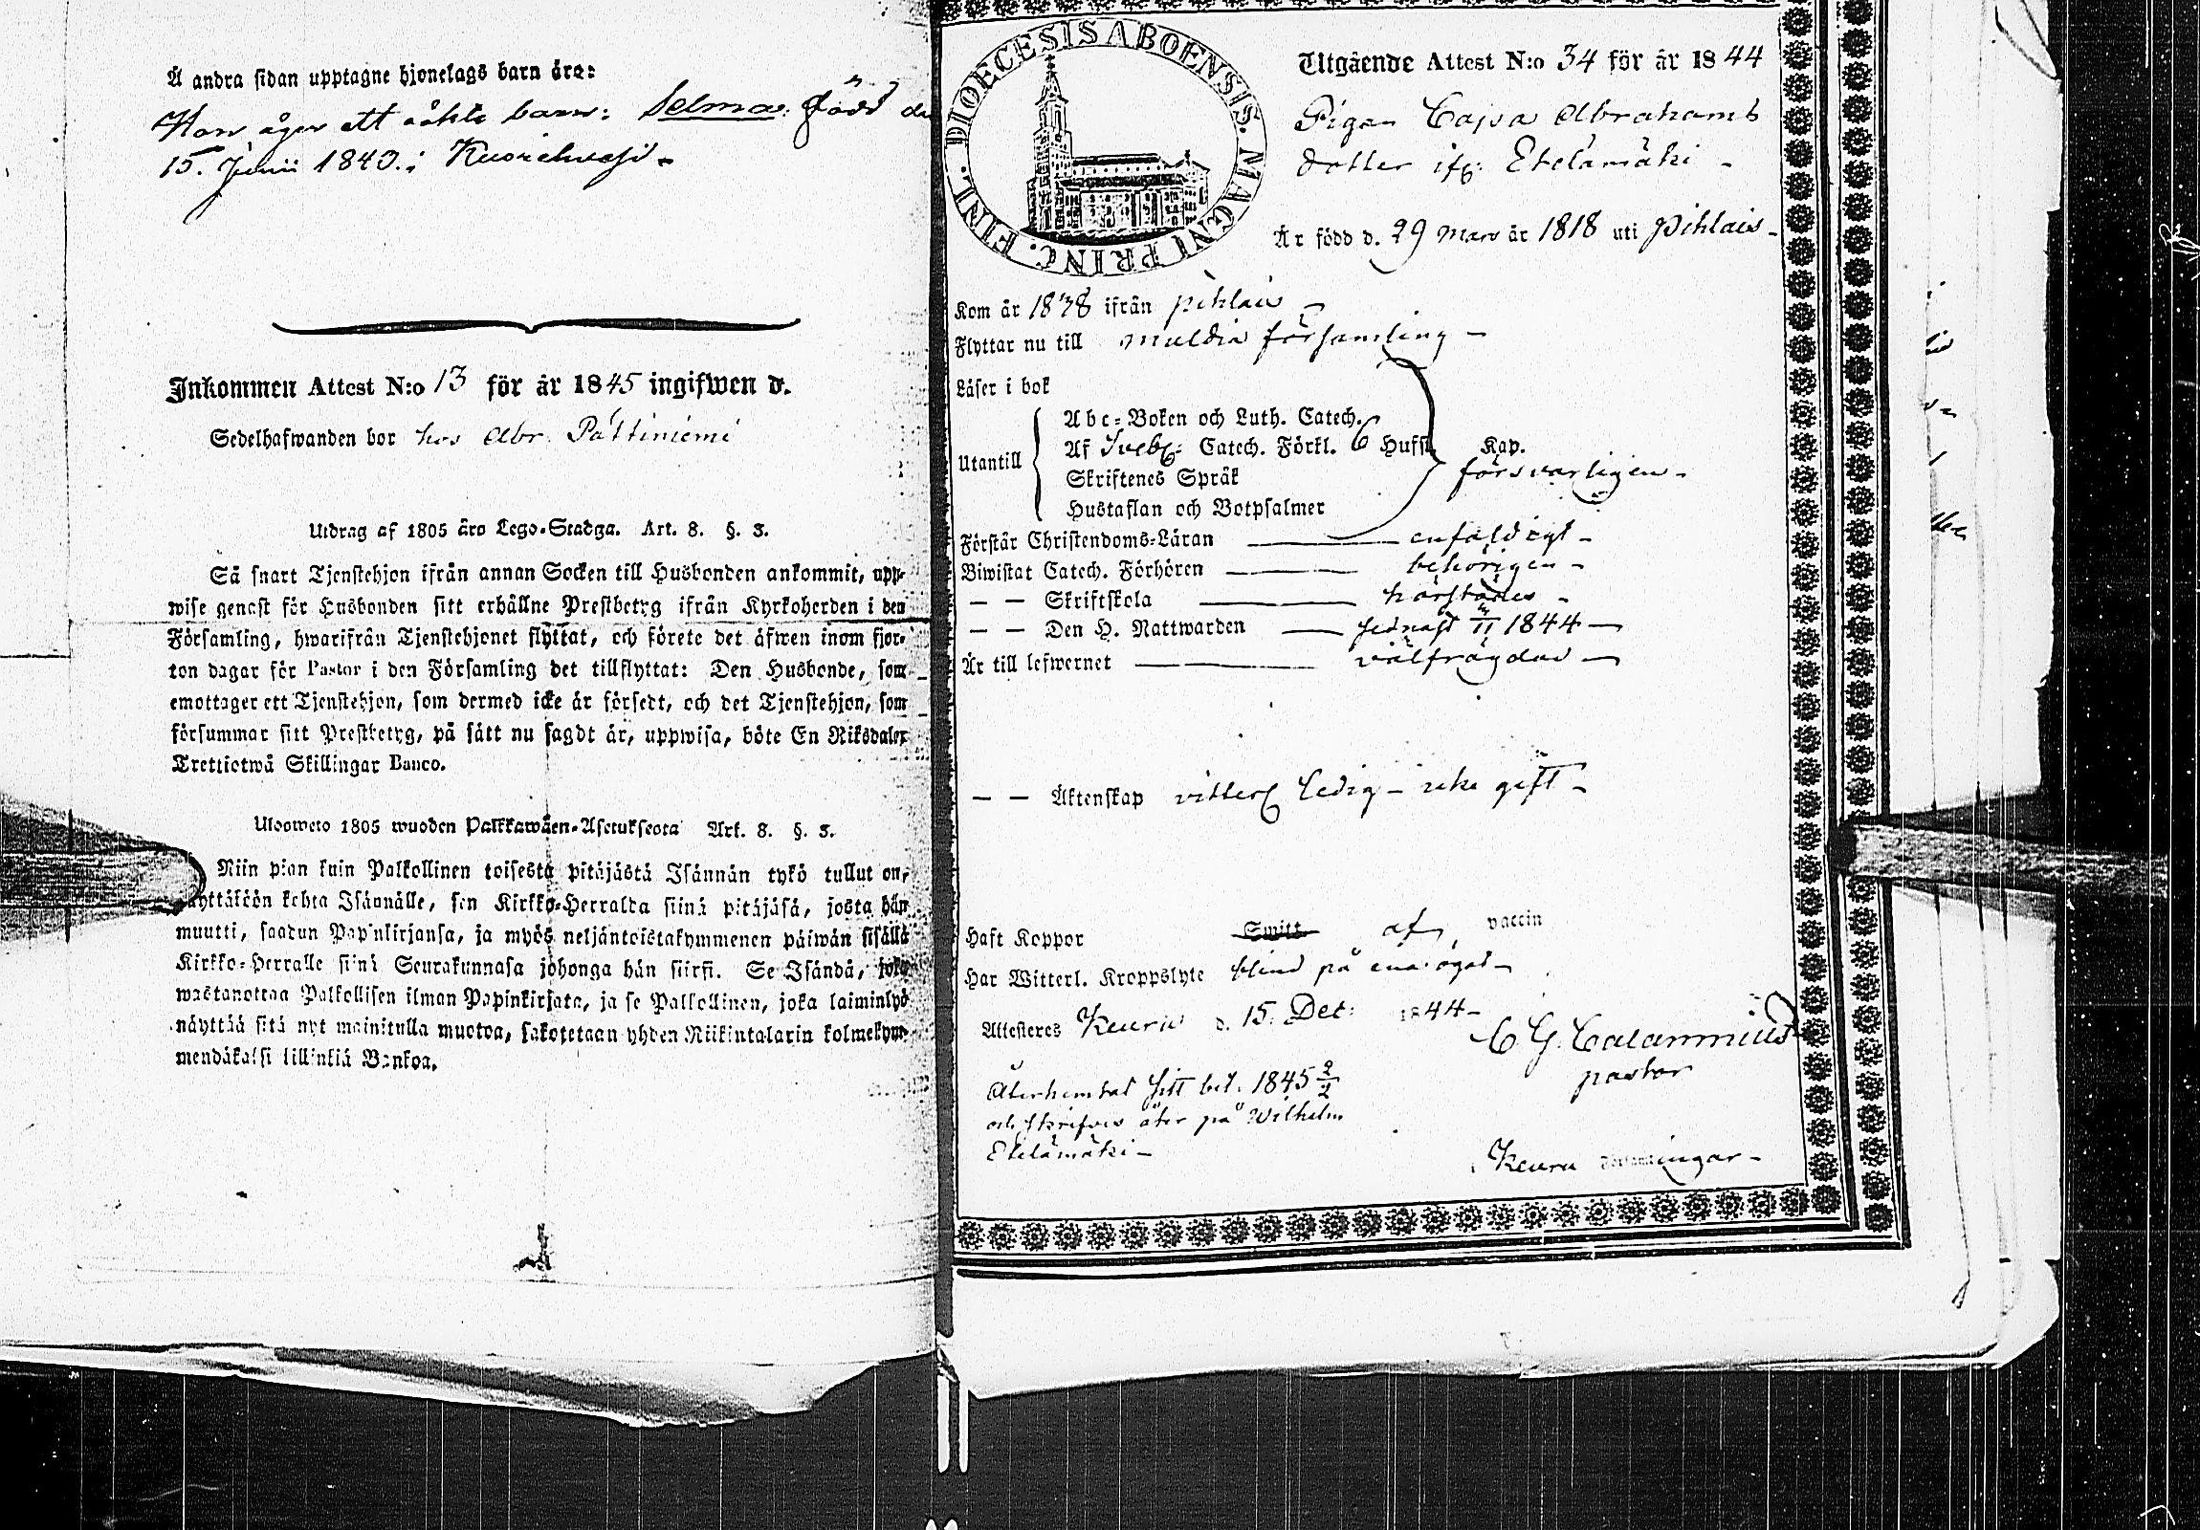 Å andra sidan upptagne hjonelags barn äro:
Hon äger ett oäkta barn: Selma. född
15. Junii 1840.
Inkommen Attest N:o 13 för år 1845 ingifwen d.
Sedelhafwanden bor hos Abr. Pättiniemi
Utdrag af 1805 åro Lego-Stadga. Art. 8. §. 3.
Så snart Tjenstehjon ifrån annan Socken till Husbonden ankommit, upp-
wise genast för Husbonden sitt erhållne Prestbetyg ifrån Kyrkoherden i den
Församling, hwarifrån Tjenstehjonet flyttat, och förete det äfwen inom fjor-
ton dagar för Pastor i den Församling det tillflyttat: Den Husbonde, som
emottager ett Tjenstehjon, som dermed icke är försedt, och det Tjenstehjon, som
försummar sitt Prestbetyg, på sätt nu sagdt är, uppwisa, böte En Riksdaler
Trettiotwå Skillingar Banco.
Ulosweto 1805 wuoden Palkkawäen-Asetuksesta Art. 8. §. 3.
Niin pian kuin Palkollinen toisesta pitäjästä Isännän tykö tullut on,
näyttäköön kohta Isännälle, sen Kirkko-Herralta siinä pitäjäsä, josta hän
muutti, saadun Papinkirjansa, ja myös neljäntoistakymmenen päiwän sisällä
Kirkko-Herralle siinä Seurakunnasa johonga hän siirsi. Se Isändä, joka
wastanottaa Palkollisen ilman Papinkirjata, ja se Palkollinen, joka laiminlyö
näyttää sitä nyt mainitulla muotoa, sakotetaan yhden Riikintalarin kolmekym-
mendäkaksi killinkiä Bankoa.
DIOECESIS ABOENSIS. MAGNI PRINC. FINL.
Utgående Attest N:o 34 för år 1844
Pigan Cajsa Abrahams
dotter ifr: Etelämäki
Är född d. 29 mars år 1818 uti Pihlais
Kom år 1838 ifrån Pihlais
Flyttar nu till Muldia församling
Läser i bok
Utantill
Abc-Boken och Luth. Catech.
Af Svebel: Catech. Förkl. 6 Hufst. Kap.
försvarligen
Skriftenes Språk
Hustaflan och Botpsalmer
Förstår Christendoms-Läran enfaldigt
Biwistat Catech. Förhören behörigen
— — Skriftskola härstädes
— — Den H. Nattwarden senast 1844
Är till lefwernet välfrägdad
— — Äktenskap vitterl ledig — icke gift
Haft Koppor af vaccin
Har Witterl. Kroppslyte blind på ena ögat
Attesteras Keuru d. 15. Dec: 1844
C G. Calamnius
pastor
Återhemtat sitt bet. 1845 2/2
och skrifves åter på Wilhelm
Etelämäki
Keuru Församlingar